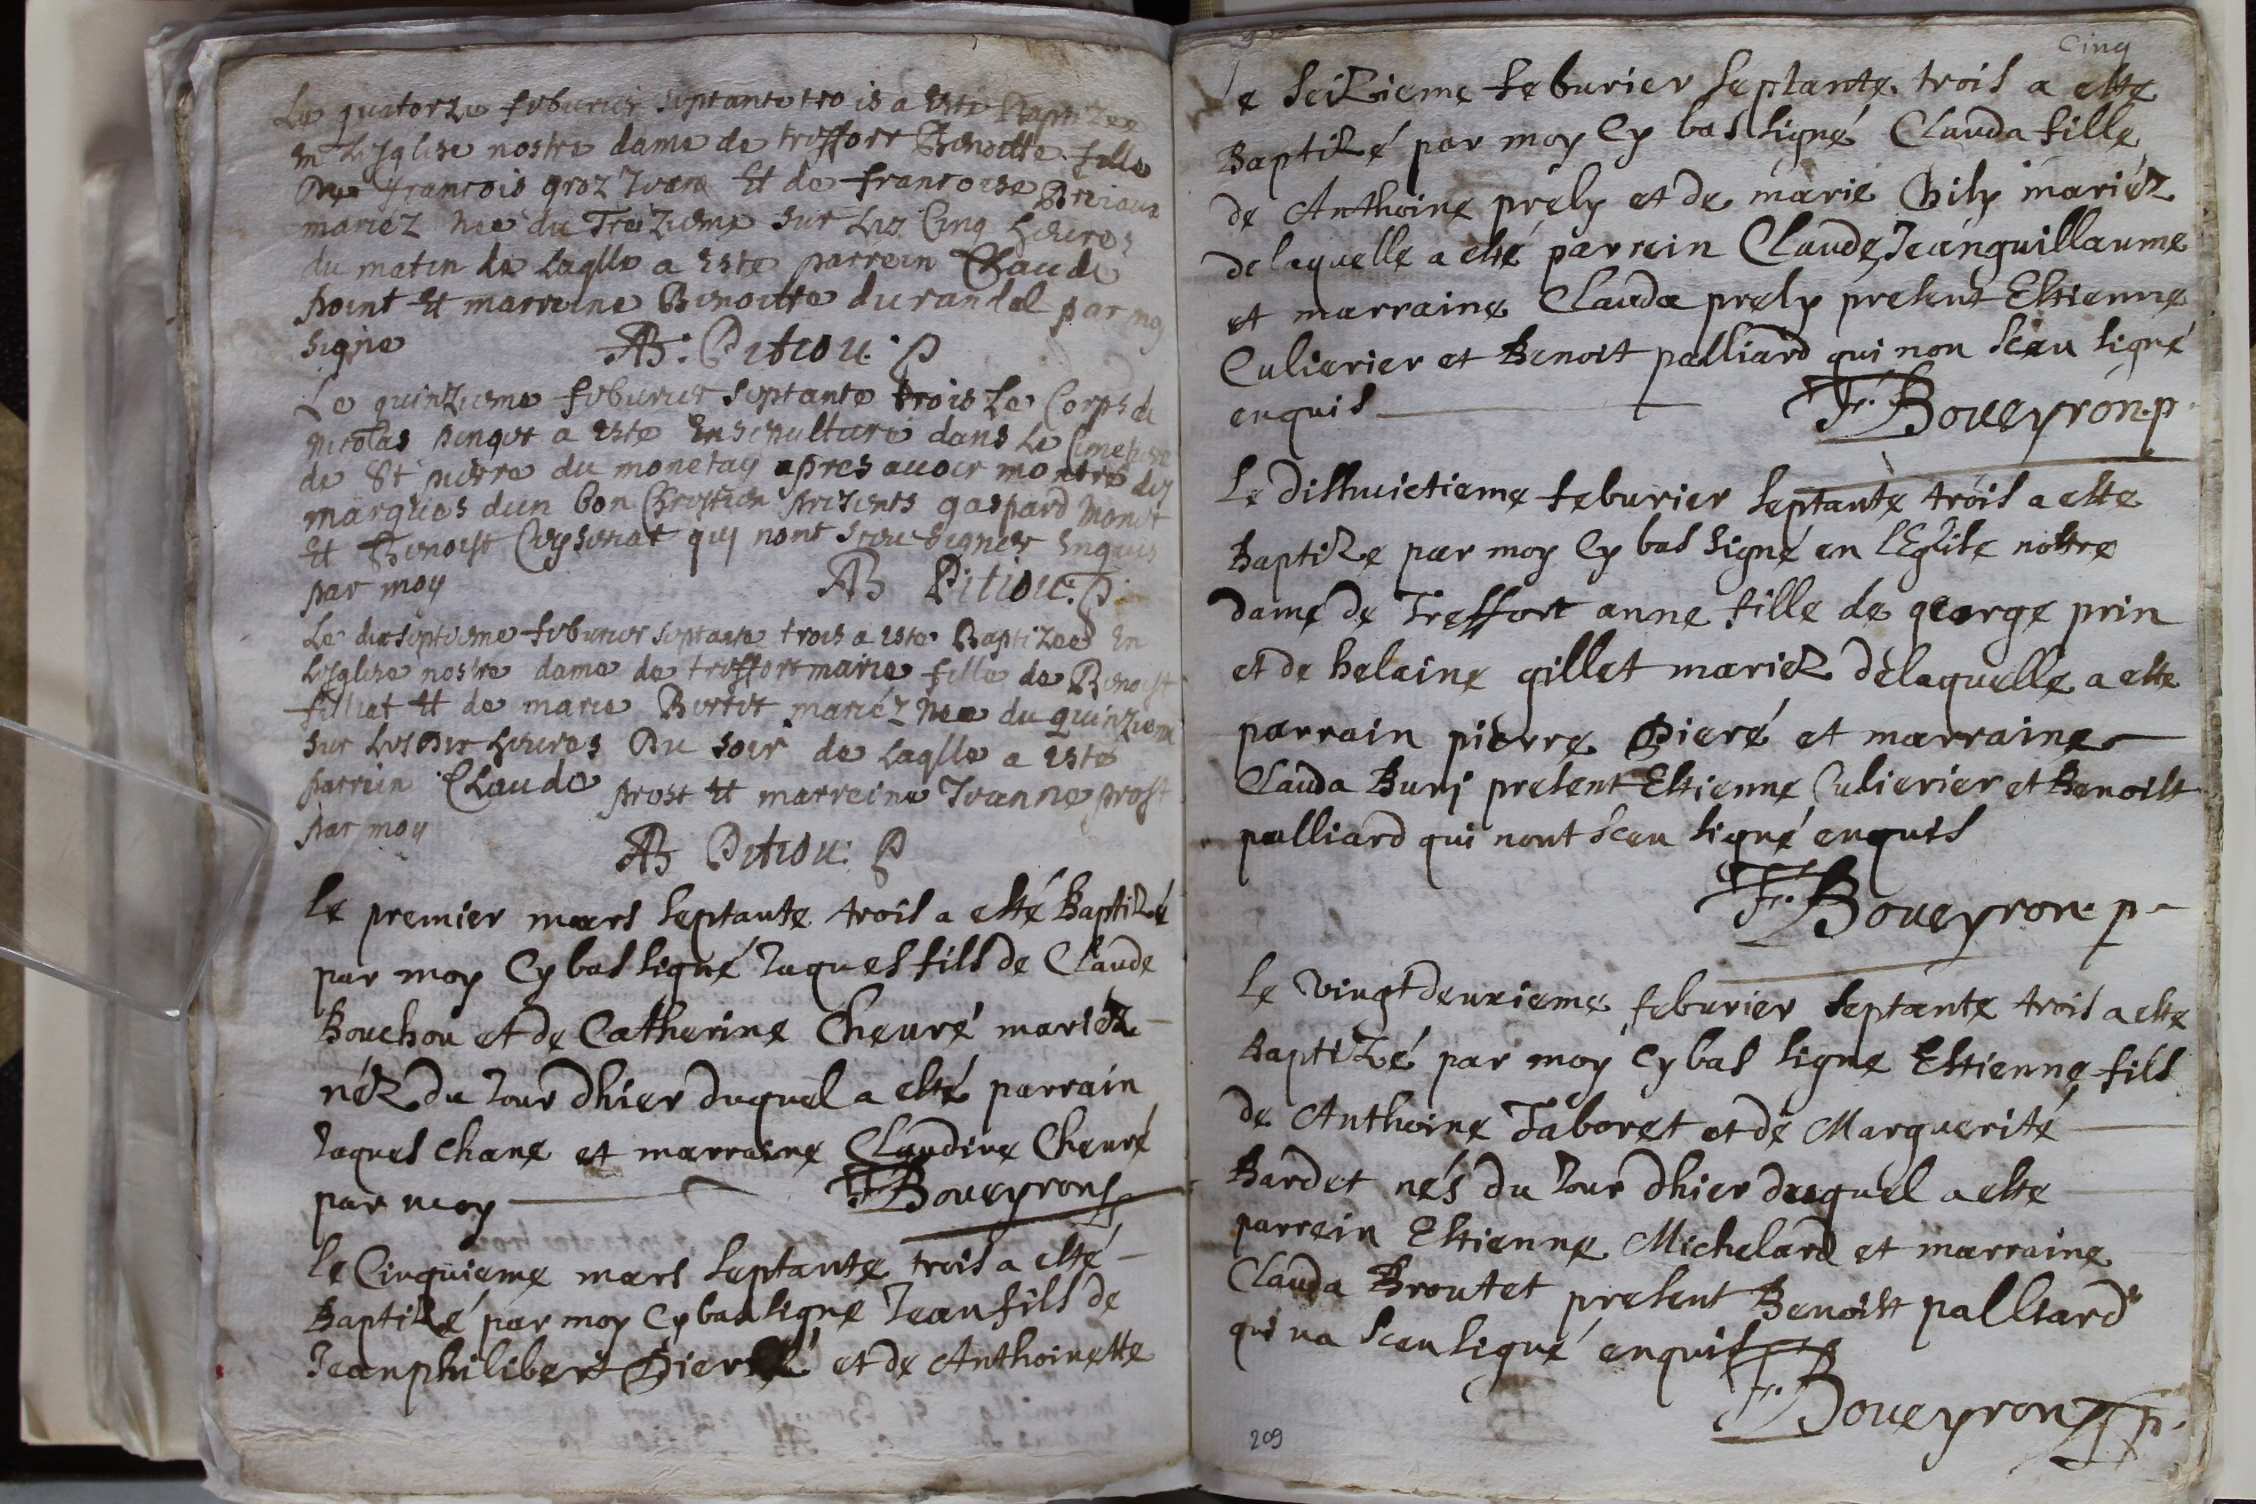 Le quatorze feburier septante trois a esté Baptizee
en Lesglise nostre dame de treffort Benoitte fille
De francois groz Et de francoise
mariez nee du Treizieme sur Les Cinq heures
du matin de Laqlle a esté parrein Claude
point Et marreine Benoitte durandel par moy
signé
AB: Pitiou: P
Le quinzieme feburier septante trois Le Corps de
nicolas a esté Ensepulturé dans Le Cimetiere
de St pierre du monetay apres auoir montré des
marques dun bon Chrestien presents gaspard monet
Et Benoist qui nont sceu signer Enquis
par moy
AB Pitiou: P.
Le dixseptieme feburier septante trois a esté Baptizee En
Lesglise nostre dame de treffort marie fille de Benoist
filliat Et de marie Bertet mariéz nee du quinzieme
sur Les Dix heures Du soir de Laqlle a esté
parrein Claude prost Et marreine Jeanne prost
par moy
AB Pitiou: P
Le premier mars septante trois a esté Baptizé
par moy Cy bas signé Jaques fils de Claude
Bouchou et de Catherine Cheuré mariez
néz du Jour dhier duquel a esté parrain
Jaques chane et marraine Claudine Cheuré
par moy
F Boueyron
Le Cinquieme mars septante trois a esté
Baptizé par moy Cy bas signé Jean fils de
Jean philibert et de Anthoinette
Cinq
Le seizieme feburier septante trois a esté
Baptizé par moy Cy bas signé Clauda fille
de Anthoine prely et de marie Gily mariéz
de laquelle a esté parrein Claude Jeanguillaume
et marraine Clauda prely present Estienne
Culierier et Benoit palliard qui non sceu signé
enquis
Fr. Boueyron. p.
Le dishuictieme feburier septante trois a esté
Baptize par moy Cy bas signé en lEglise nostre
dame de Treffort anne fille de george prin
et de helaine gillet mariez delaquelle a esté
parrain pierre Dieré et marraine
Clauda Buri present Estienne Culierier et Benoist
palliard qui nont sceu signé enquis
Fr. Boueyron. p
Le vingtdeuxieme feburier septante trois a este
Baptizé par moy Cy bas signe Estienne fils
de Anthoine Taboret et de Marguerité
Bardet nés du Jour dhier duquel a esté
parrein Estienne Michelard et marraine
Clauda Broutet present Benoist palliard
qui na sceu signé enquis
Fr. Boueyron p.
209